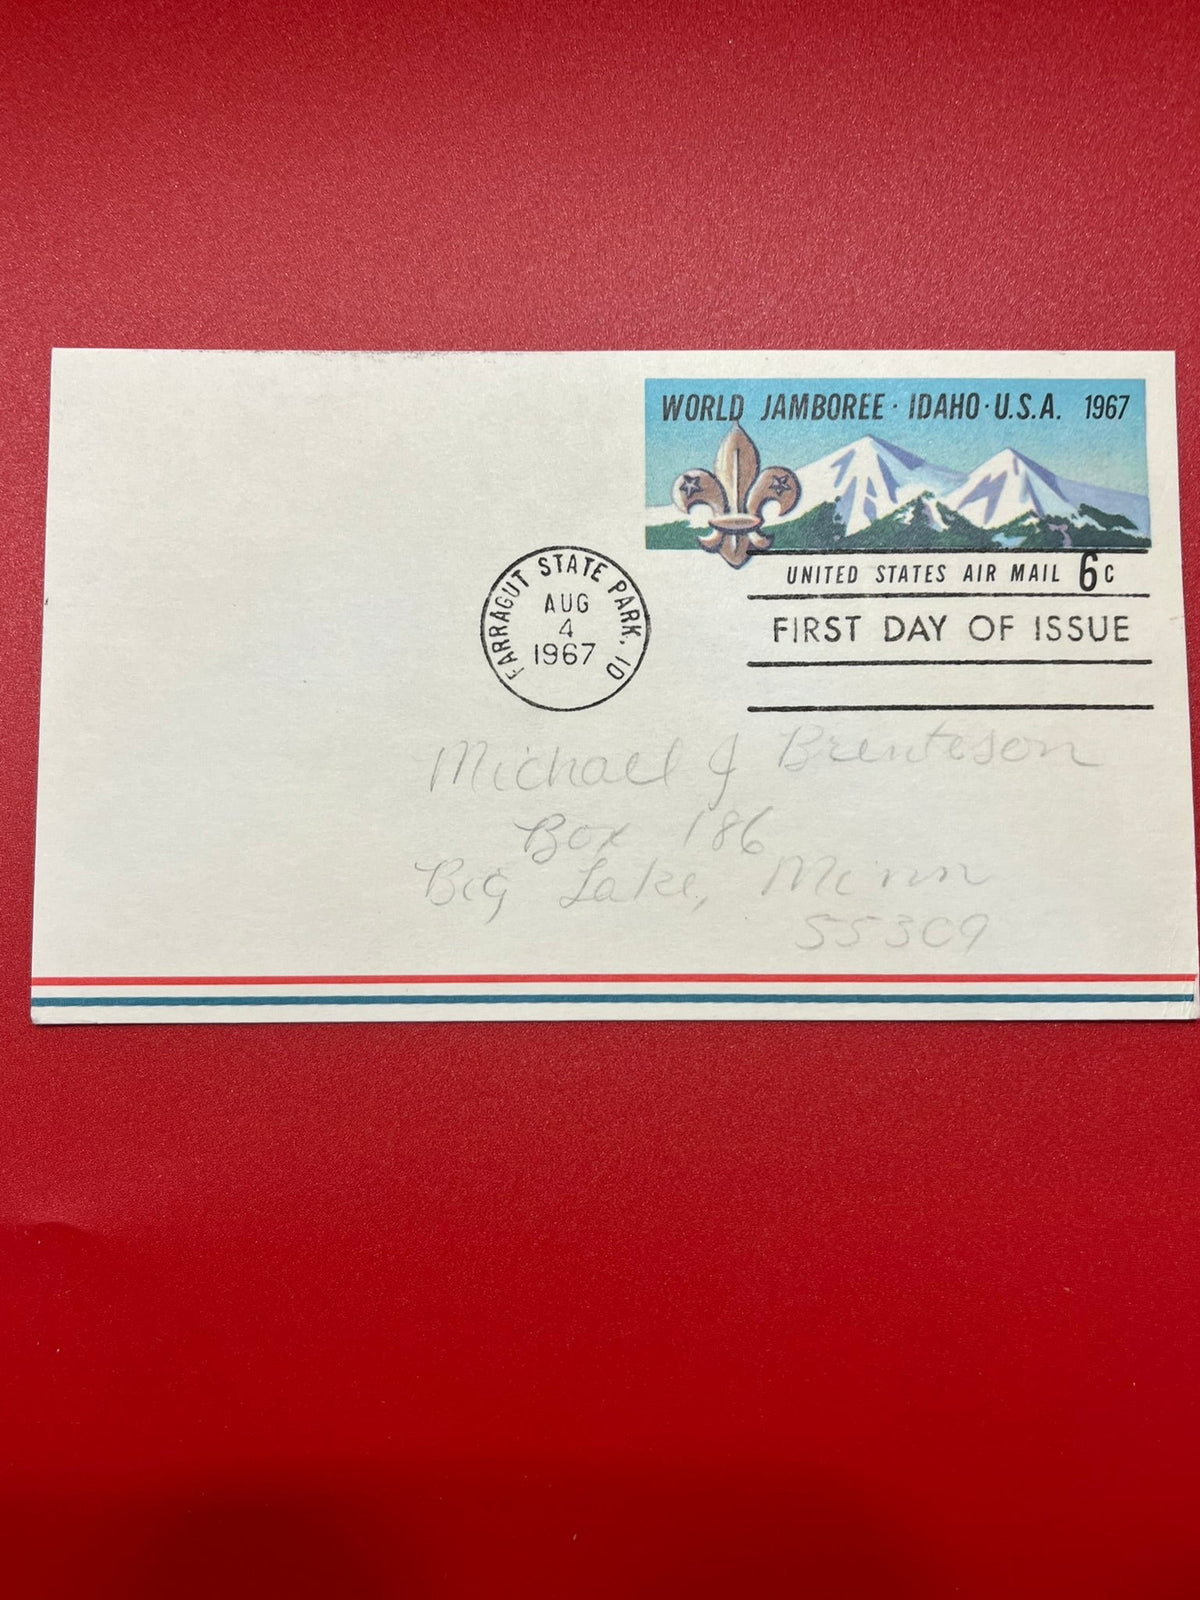 WORLD JAMBOREE · IDAHO · U.S.A. 1967
UNITED STATES AIR MAIL 6c
FIRST DAY OF ISSUE
FARRAGUT STATE PARK, ID
AUG
4
1967
Michael J Brenteson
Box 186
Big Lake, Minn
55309